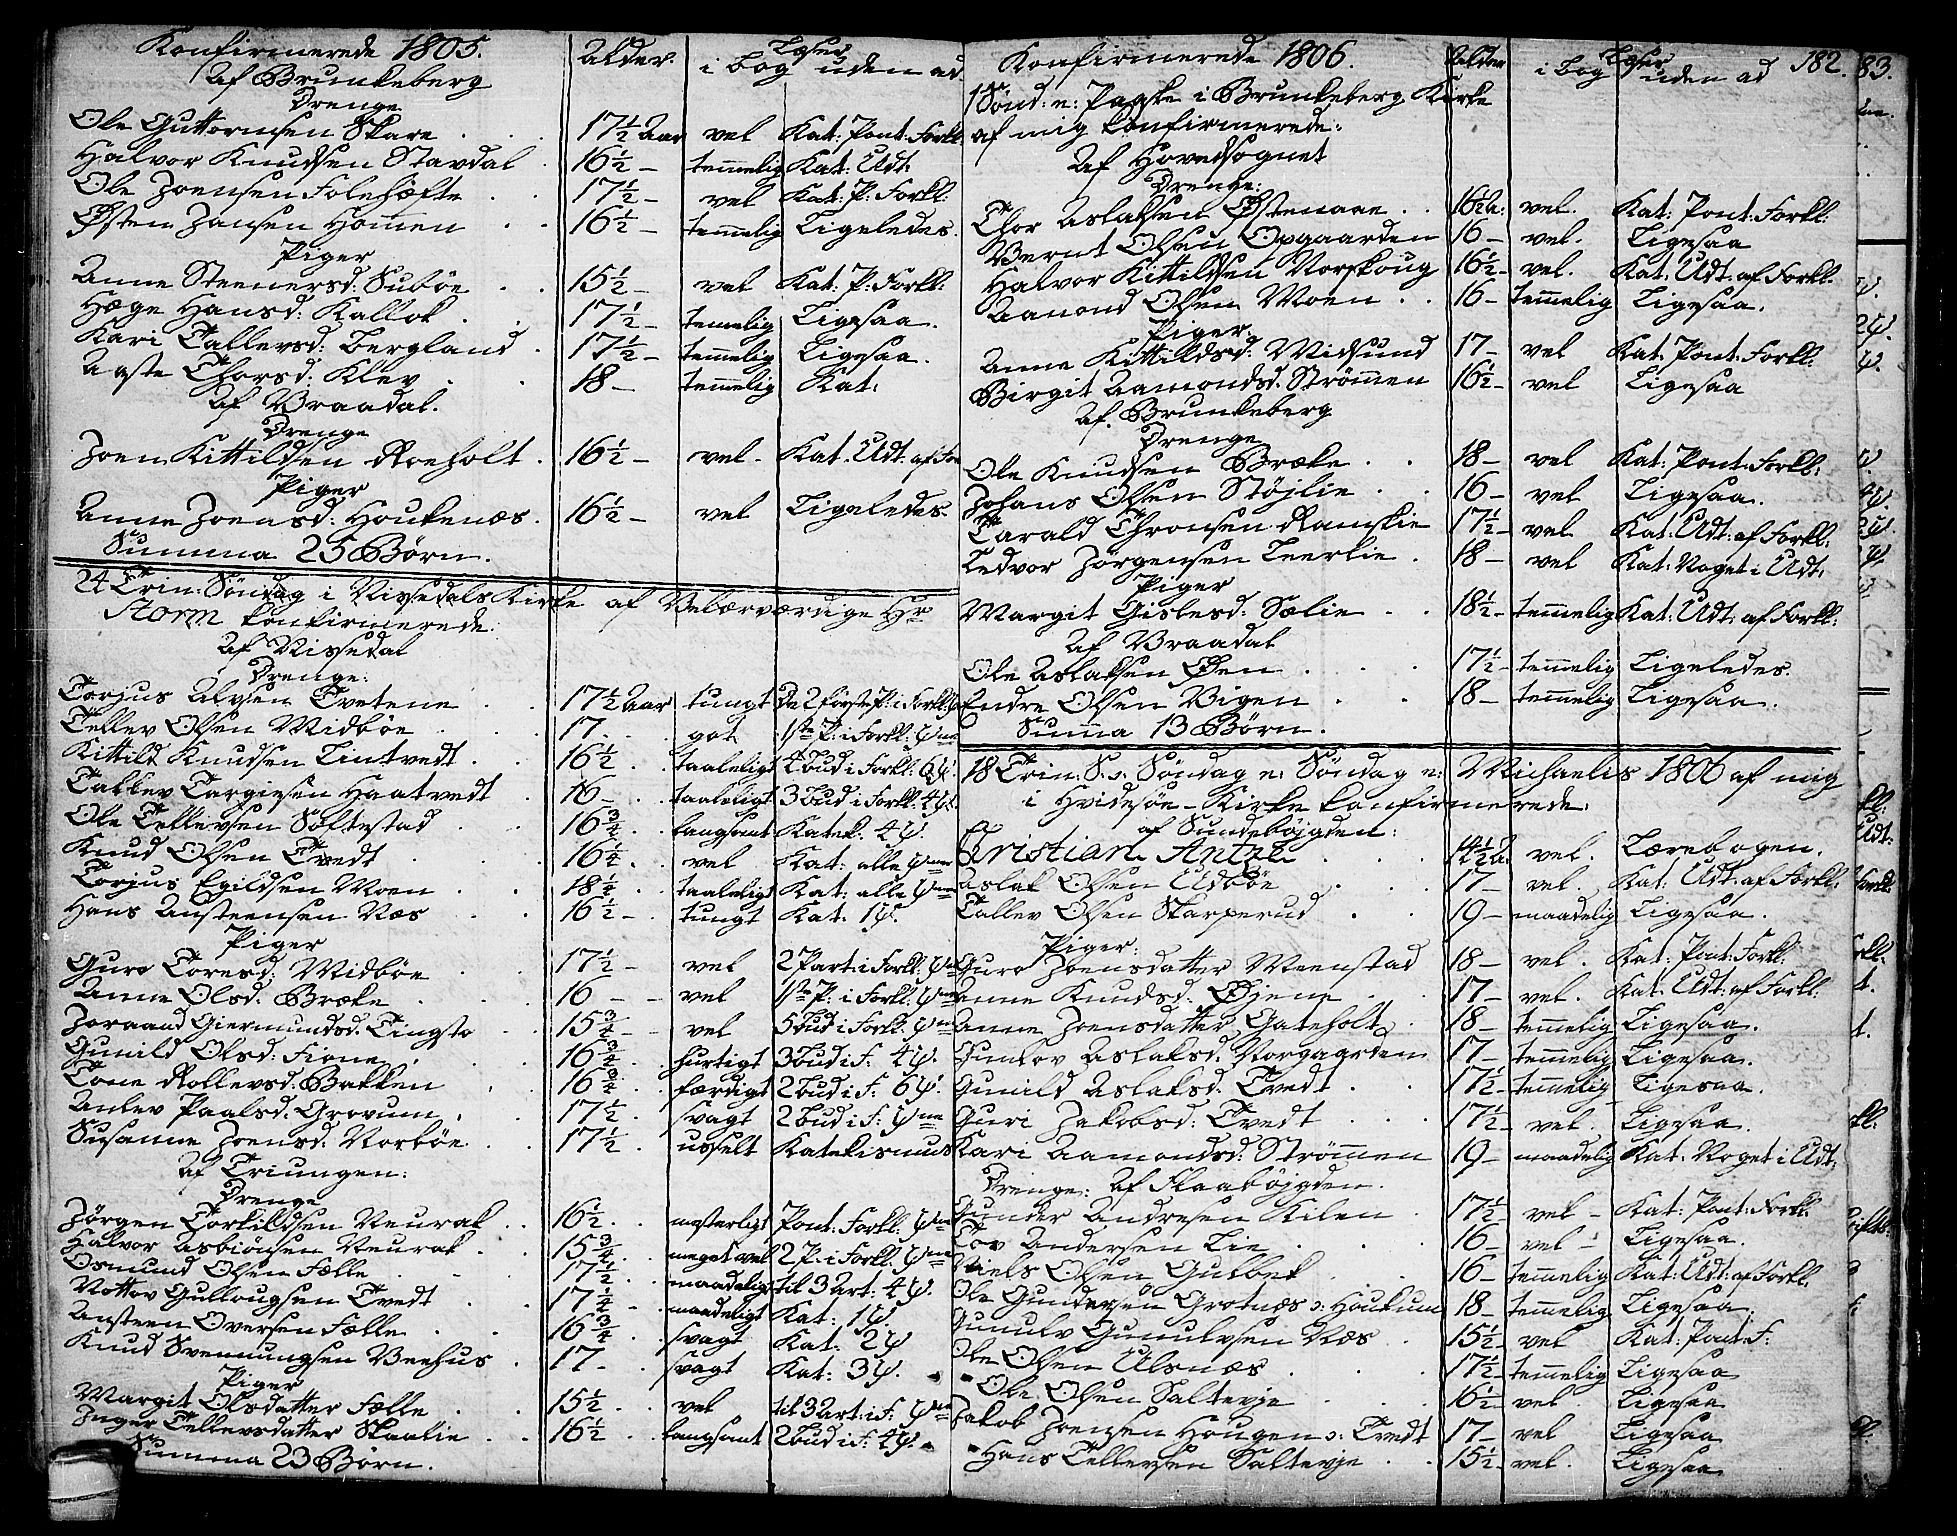 Konfirmerede 1805. Alder. Læser i Bog uden ad
Af Brunkeberg
Drenge
Ole Guttormsen Skare . . 17½ Aar vel Kat: Pont: Forkl
Halvor Knudsen Stavdal . 16½ – temmelig Kat: Udt:
Ole Joensen Folehofte . . 17½ – vel Kat: P: Forkl:
Østen Jansen Hommen . . 16½ – temmelig Ligeledes.
Piger
Anne Steenersd: Subøe . . 15½ – vel Kat: P: Forkl:
Hæge Hansd: Kallok . . 17½ – temelig Ligesaa.
Kari Tallevsd: Bergland . 17½ – temmelig Ligesaa.
Aaste Thorsd: Klev . . 18 – temmelig Kat:
Af Vraadal.
Drenge
Joen Kittildsen Roeholt . 16½ – vel. Kat. Udt. af For
Piger
Anne Joensd: Houkenæs. 16½ – vel Ligeledes.
Summa 25 Børn.
24 Trin: Søndag i Nissedals Kirke af Velærværdige Hr
Storm konfirmerede:
Af Nissedal
Drenge:
Torjus Alvsen Tvetene . . 17½ Aar tungt De 2 første P: i Forkl:
Tellev Olsen Midbøe . . 17. . . got 1ste P: i Forkl: ψne
Kittild Knudsen Lintvedt . . 16½ . . taaleligt 4 Bud i Forkl: 6ψ.
Tallev Targiesen Haatvedt . 16 – . . taaleligt 3 Bud i Forkl: 4ψ.
Ole Tellevsen Søftestad . . 16¾ . . langsamt Katek. 4ψ.
Knud Olsen Tvedt . . 16¼ . . vel Kat: alle ψne
Torjus Egildsen Moen . . 18¼ . . taaleligt Kat: alle ψne
Hans Ansteensen Næs . . 16½ – . tungt Kat: 1ψ.
Piger
Guro Toresd: Midbøe . . 17½ – vel 2 Part: i Forkl: ψne
Anne Olsd: Bræke . . 16 – – vel 1ste P: i Forkl: ψne
Joraand Giermundsd. Tingsto . 15¾ – – vel 5 Bud i Forkl: ψne
Gunild Olsd: Fione . . 16¾ . . hurtigt 3 Bud i F: 4ψ.
Tone Rollevsd: Bakken . 16¾ . . færdigt 2 Bud i F: 6ψ.
Anlev Paalsd: Grovum . . 17½ . svagt 2 Bud i F: ψne
Susanne Joensd: Norbøe . . 17½ . usselt Katekismus
Af Triungen:
Drenge
Jørgen Torkildsen Neurak . . 16½ . . mesterligt Pont: Forkl: ψne
Halvor Asbiønsen Neurak . . 15¾ . . meget vel 2 P: i Forkl: ψne
Osmund Olsen Fælle . . 17½ . . maadeligt til 3 Art: 4ψ.
Nottov Gullougsen Tvedt . . 17¼ – . maadeligt Kat: 1ψ.
Ansteen Oversen Fælle . . 16¾ . . svagt Kat: 2ψ
Knud Svennungsen Veehus . 17 – . svagt Kat: 3ψ.
Piger
Margit Olsdatter Fælle . . 15½ . . vel til 3 Art: i F: ψne
Inger Tellevsdatter Skaalie . . 16½ . . langsomt 2 Bud i F: 4ψ.
Summa 23 Børn.
Konfirmerede 1806. Alder Læser i Bog uden ad 182.
1 Sønd: e: Paaske i Brunkeberg Kirke
af mig konfirmerede:
Af Hovedsognet
Drenge:
Thor Aslaksen Østenaae . . 16½ A: vel. Kat: Pont: Forkl:
Bernt Olsen Opgaarden 16 – vel. Ligesaa
Halvor Kittildsen Norskoug 16½ – vel. Kat: Udt: af Forkl.
Aamond Olsen Moen . . 16 – temmelig Ligesaa.
Piger:
Anne Kittildsd: Midsund 17 – vel Kat: Pont: Forkl:
Birgit Aamondsd. Strømmen 16½ – vel Ligesaa
Af. Brunkeberg
Drenge
Ole Knudsen Bræke . . 18 – vel Kat: Pont: Forkl:
Johans Olsen Støjlie . . 16 – vel Ligesaa.
Tarald Thronsen Ramskie 17½ – vel Kat: Udt: af Forkl:
Ledvor Jørgensen Leerlie . 18 – vel Kat: Noget i Udt:
Piger
Margit Gislesd: Sælie . . 18½ – temmelig Kat: Udt: af Forkl:
Af Vraadal
Ole Aslaksen Øen . . . 17½ – temmelig Ligeledes.
Endre Olsen Vigen . . 18 – temmelig Ligesaa.
Summa 13 Børn.
18 Trin: S. ɔ: Søndag e: Søndag e: Michaelis 1806 af mig
i Hvidesøe – Kirke konfirmerede:
af Sundebøjgden:
Christian Antzée . . . 14½ A. vel. Lærebogen.
Aslak Olsen Udbøe . . 17 – vel. Kat: Udt: af Forkl:
Tallev Olsen Skarperud . . 19 – maadelig Ligesaa.
Piger:
Guro Joensdatter Meenstad 18 – vel. Kat: Pont: Forkl:
Anne Knudsd: Øjene . . 17 – vel. Kat: Udt: af Forkl:
Anne Joensdatter Gateholt . 18 – temmelig Ligesaa.
Gunlov Aslaksd: Norgaarden 17 – temmelig Ligesaa.
Gunild Aslaksd: Tvedt . . 17½ – temmelig Ligesaa.
Guri Jakobsd: Tvedt . . . 17½ – vel. Ligesaa.
Kari Aamondsd: Strømmen 19 – maadelig Kat: Noget i Udt:
Drenge: Af Flaabøjgden.
Gunder Andresen Kilen . 17½ – vel – Kat: Pont: Forkl:
Tov Andersen Lie . . . 16 – vel – Ligesaa.
Niels Olsen Gulbek . . 16 – temmelig Kat: Udt: af Forkl.
Ole Gundersen Grotnæs ɔ: Houkum 18 – temmelig Ligesaa.
Gunulv Gunulvsen Næs . 15½ – vel Kat: Pont: F:
Ole Olsen Ulsnæs . . 17½ – temmelig Ligesaa
Ole Olsen Saltevje . . . 16½ – vel . Ligesaa
Jakob Joensen Hougen ɔ: Tvedt 17 – vel Ligesaa
Hans Tellevsen Saltevje . . 15½ – vel. Ligesaa
83.